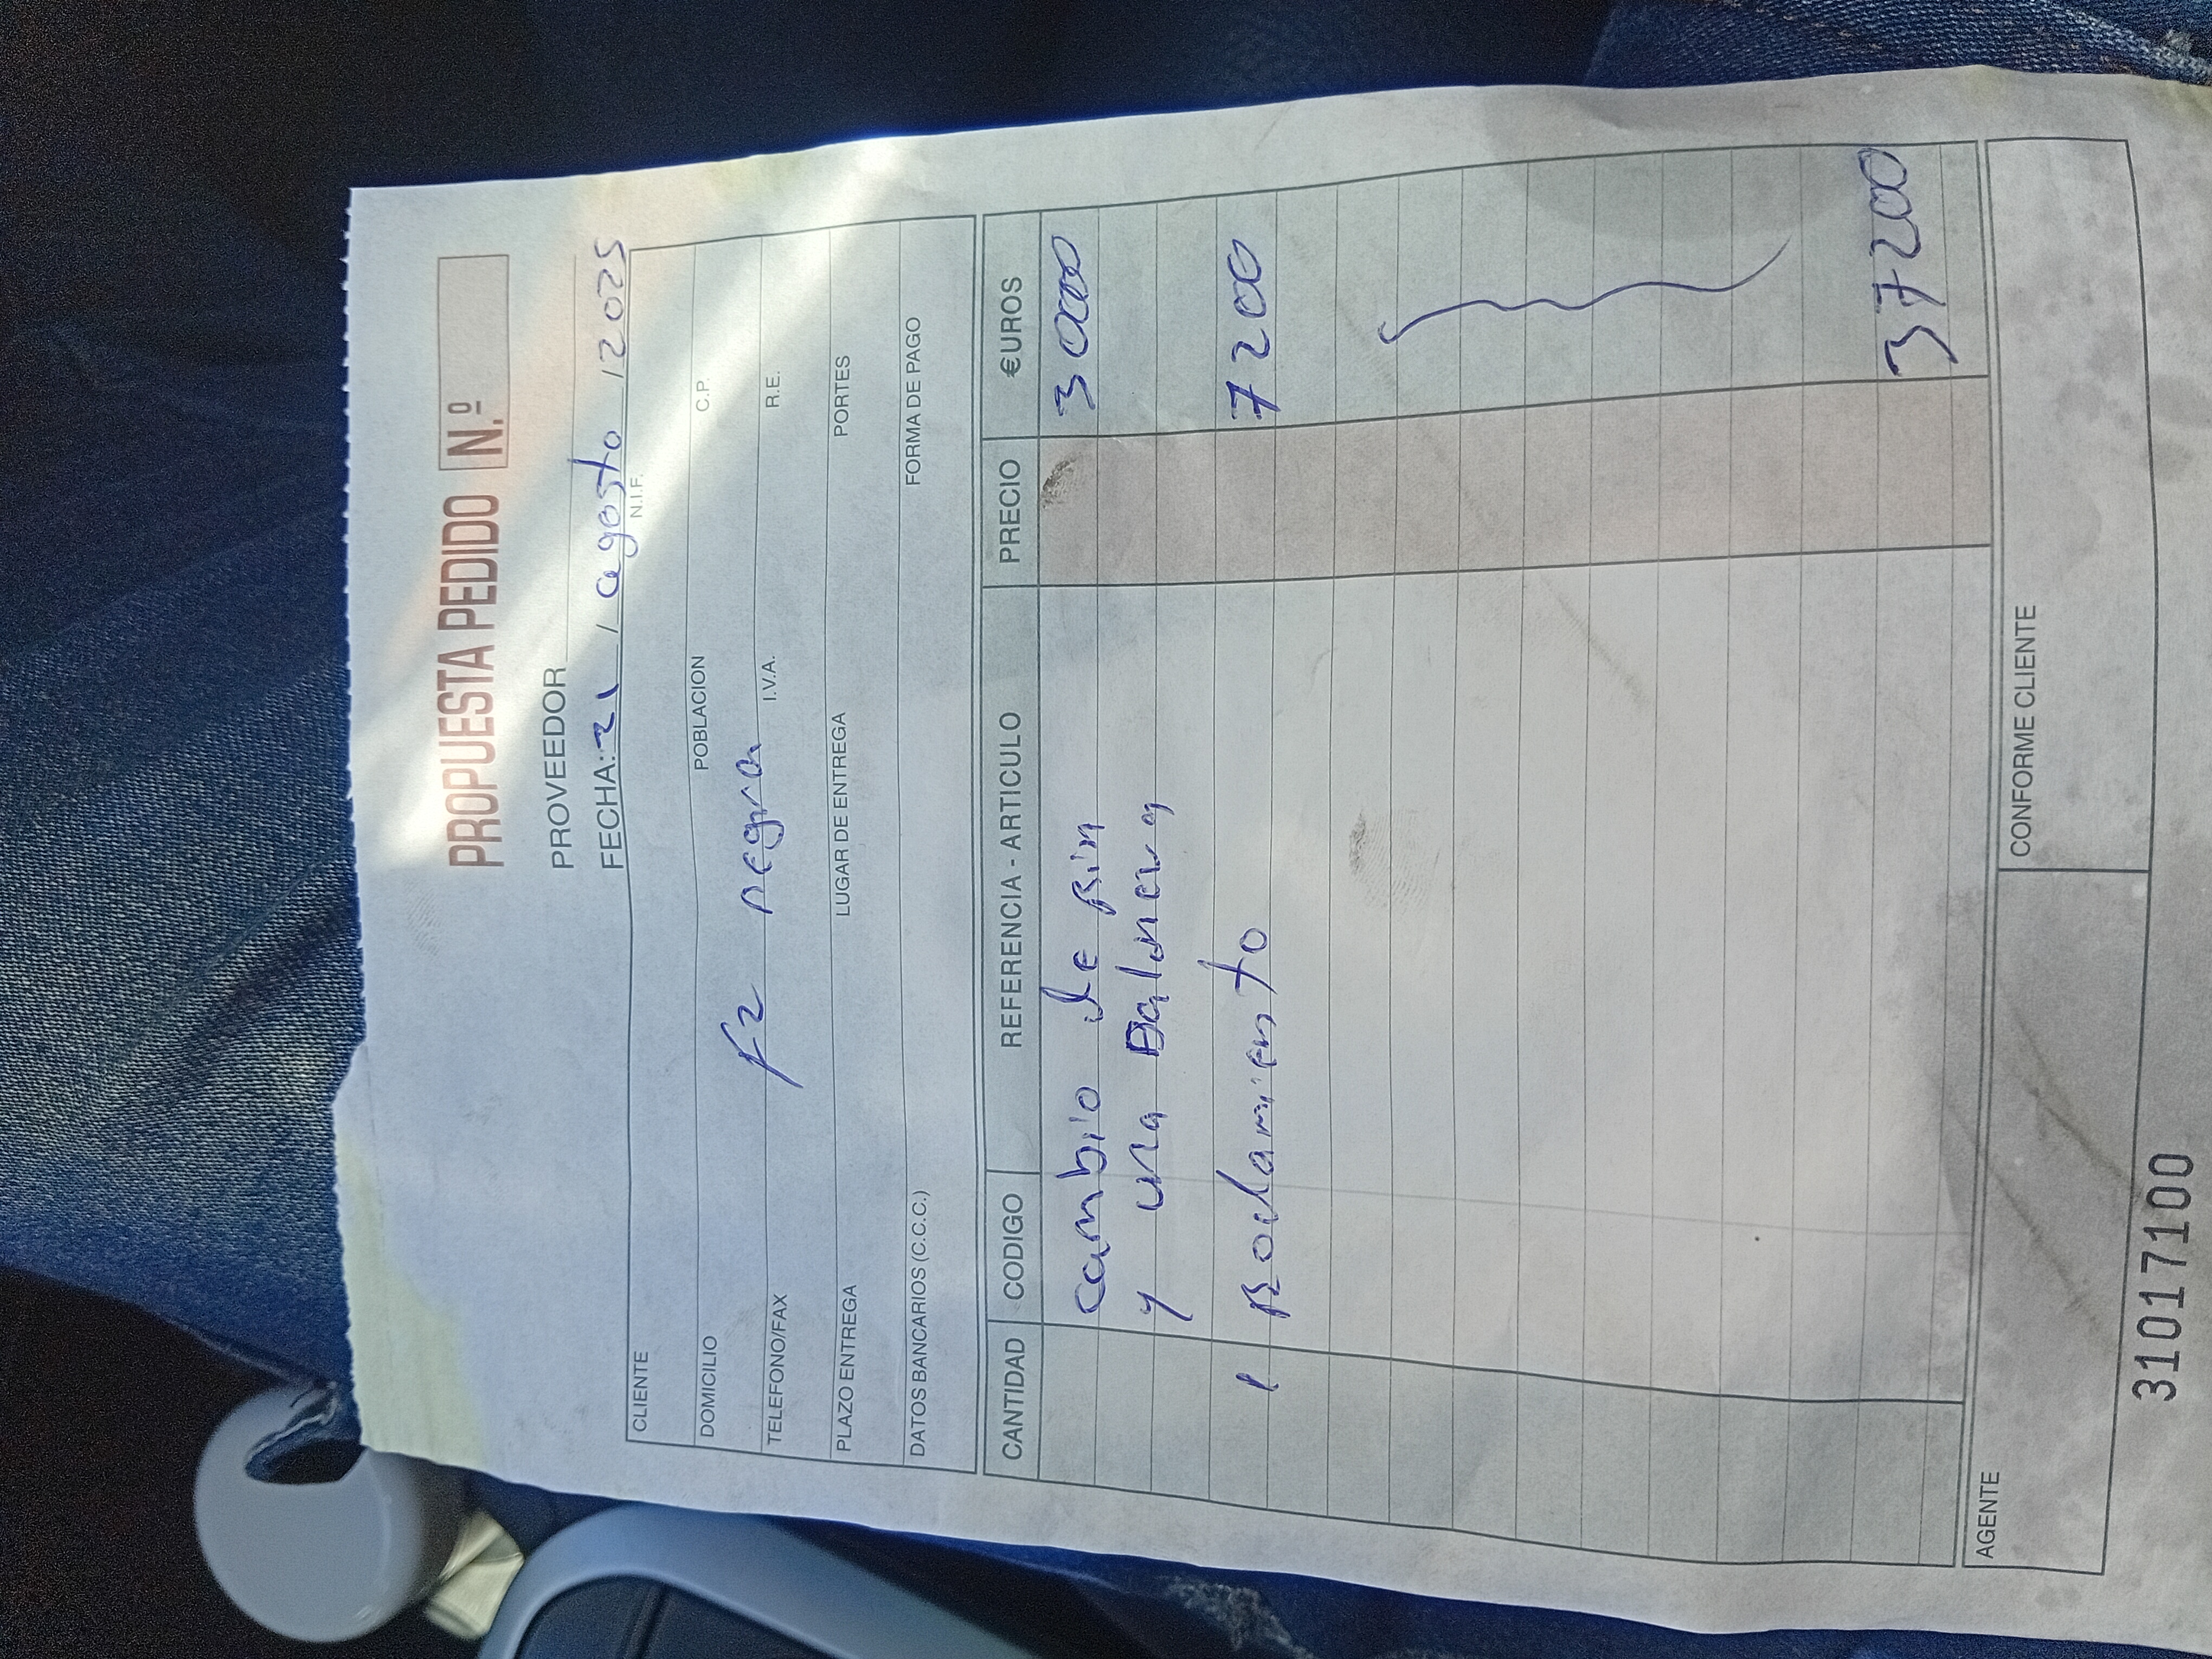 PROPUESTA PEDIDO N.º
PROVEEDOR
FECHA: 21 / agosto / 2025
CLIENTE N.I.F.
DOMICILIO POBLACION C.P.
F2 negra
TELEFONO/FAX I.V.A. R.E.
PLAZO ENTREGA LUGAR DE ENTREGA PORTES
DATOS BANCARIOS (C.C.C.) FORMA DE PAGO
CANTIDAD CODIGO REFERENCIA - ARTICULO PRECIO €UROS
cambio de Rin 30000
y una Balinera
1 Rodamiento 7200
37200
AGENTE CONFORME CLIENTE
31017100